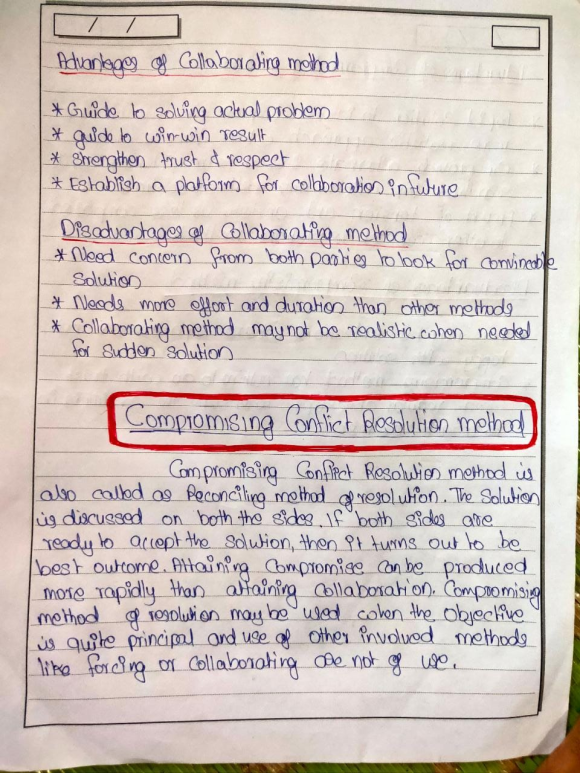 / /
Advantages of Collaborating method
* Guide to solving actual problem
* guide to win-win result
* Strengthen trust & respect
* Establish a platform for collaboration in future
Disadvantages of Collaborating method
* Need concern from both parties to look for convincable
Solution
* Needs more effort and duration than other methods
* Collaborating method may not be realistic when needed
for sudden solution
Compromising Conflict Resolution method
Compromising Conflict Resolution method is
also called as Reconciling method of resolution. The Solution
is discussed on both the sides. If both sides are
ready to accept the solution, then it turns out to be
best outcome. Attaining Compromise can be produced
more rapidly than attaining Collaboration. Compromising
method of resolution may be used when the objective
is quite principal and use of other involved methods
like forcing or Collaborating are not of use.